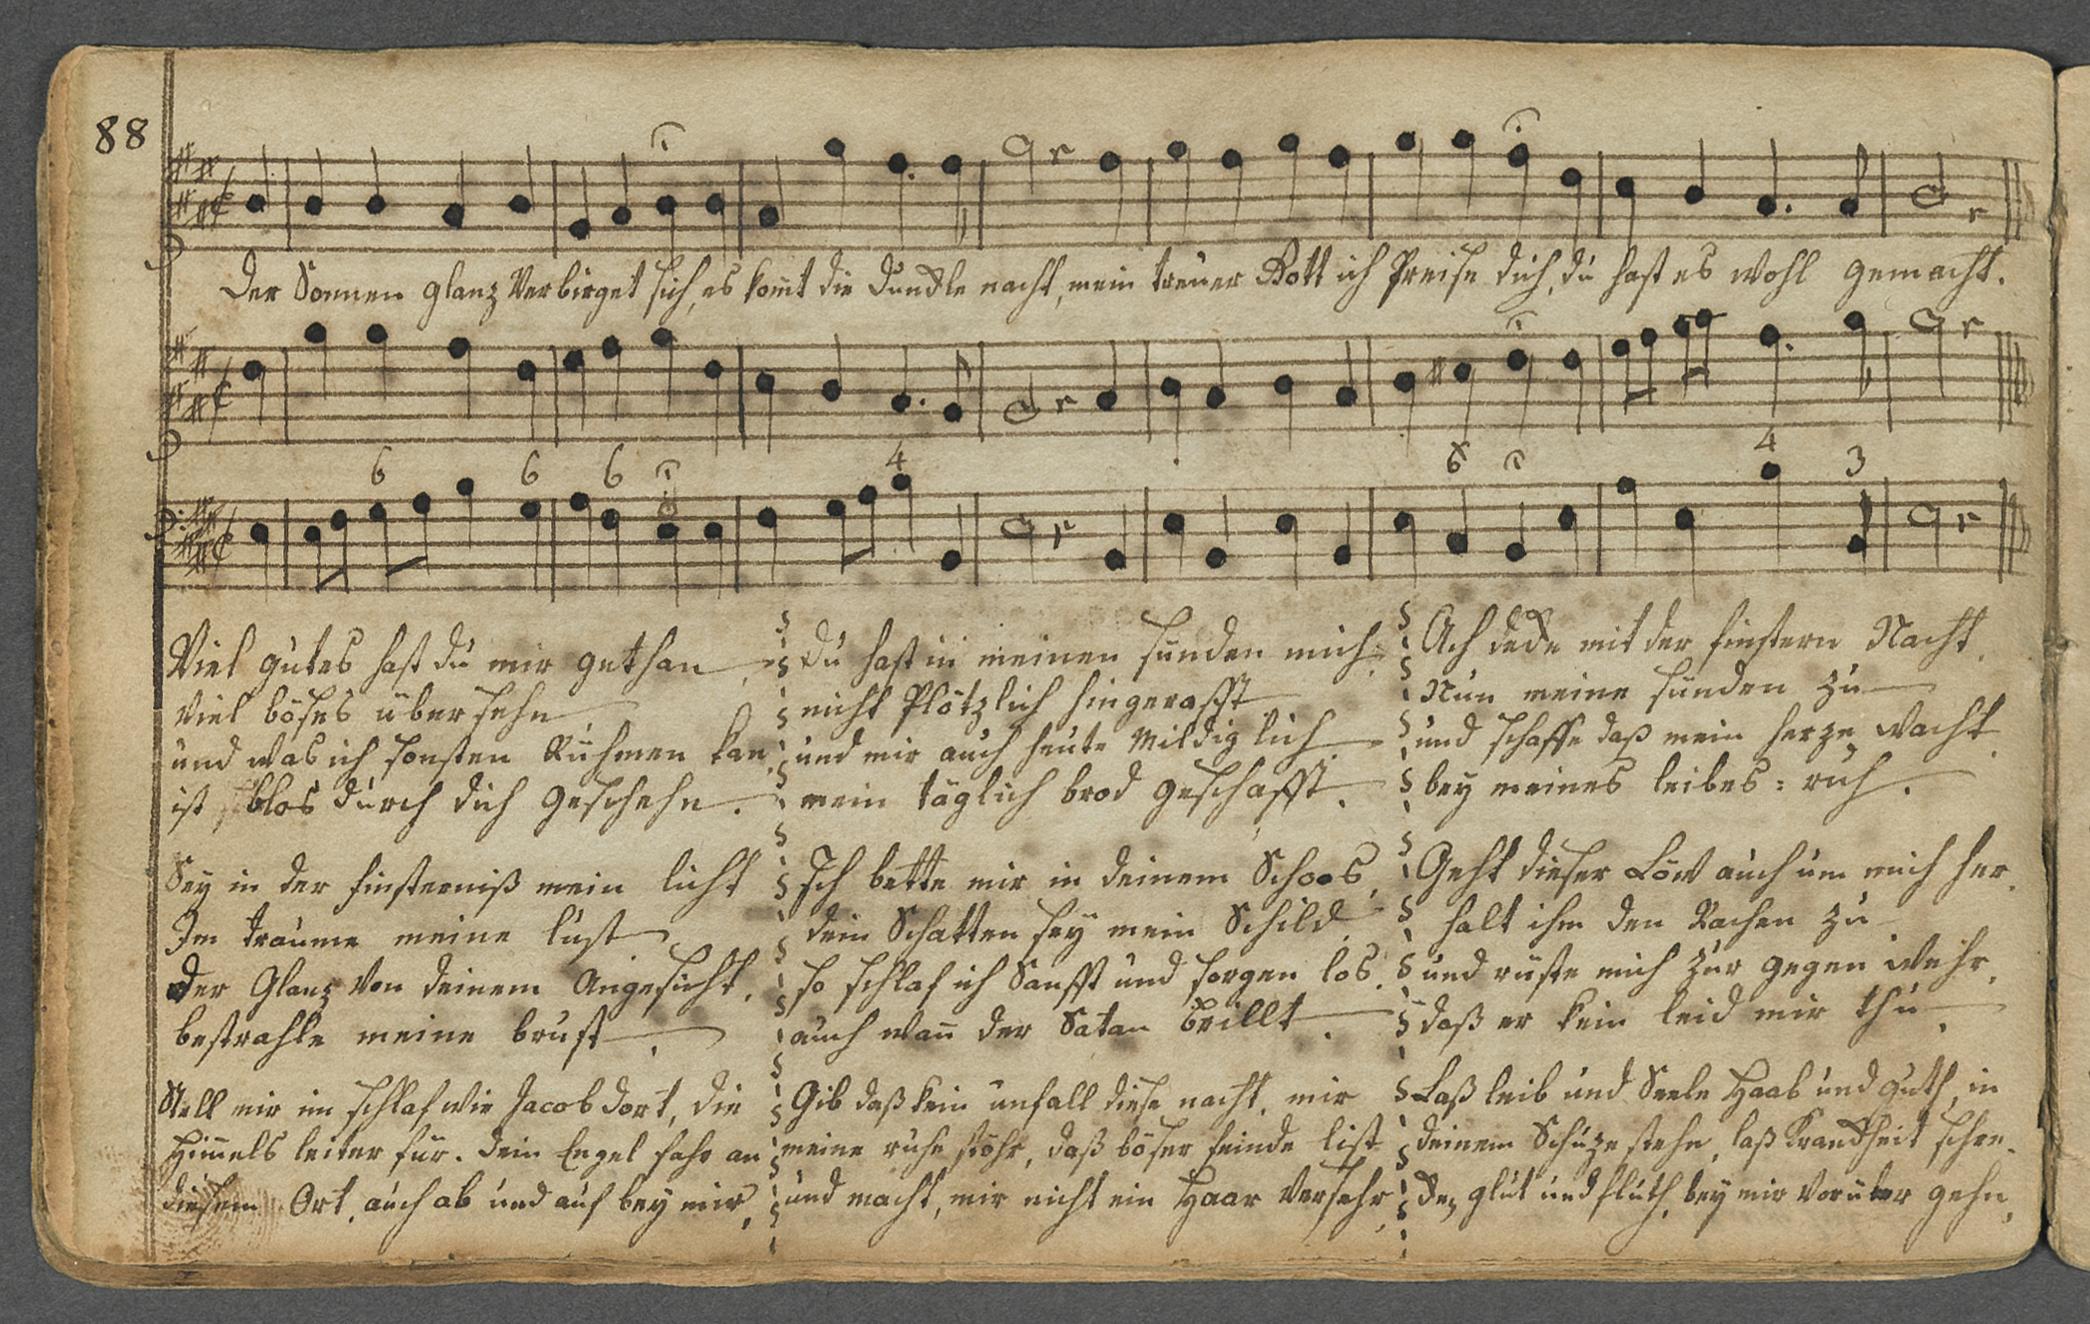 88
Der Sonnen glanz Verbirget sich, es komt die Dunckle nacht, mein treuer Gott ich Preise dich, du hast es wohl gemacht.
6 6 6 4 6 4 3
Viel gutes hast du mir gethan,
viel böses übersehn
und was ich sonsten Rühmen kan,
ist blos durch dich geschehn.
Du hast in meinen sünden mich,
nicht Plötzlich hingerafft
und mir auch heute Mildiglich
mein täglich brod geschafft.
Ach decke mit der finstern Nacht,
Nun meine sünden zu
und schaffe daß mein herze wacht
bey meines leibes: ruh.
Sey in der finsterniß mein licht
Im traume meine lust
Der Glanz von deinem Angesicht,
bestrahle meine brust.
Ich bette mir in deinem Schoos,
dein Schatten sey mein Schild,
so schlaf ich Sanfft und sorgen los,
auch wañ der Satan brillt.
Geht dieser Löw auch um mich her,
halt ihm den Rachen zu
und rüste mich zur gegen wehr,
daß er kein leid mir thu.
Stell mir im schlaf wie Jacob dort, die
Himels leiter für. dein Engel fahr an
diesem Ort, auch ab und auf bey mir,
Gib daß kein unfall diese nacht, mir
meine ruhe stöhr, daß böser feinde list
und macht, mir nicht ein Haar Versehr,
Laß leib und Seele Haab und guth, in
deinem Schuze stehn, laß Kranckheit schre-
cken, glut und fluth, bey mir vorüber gehn,